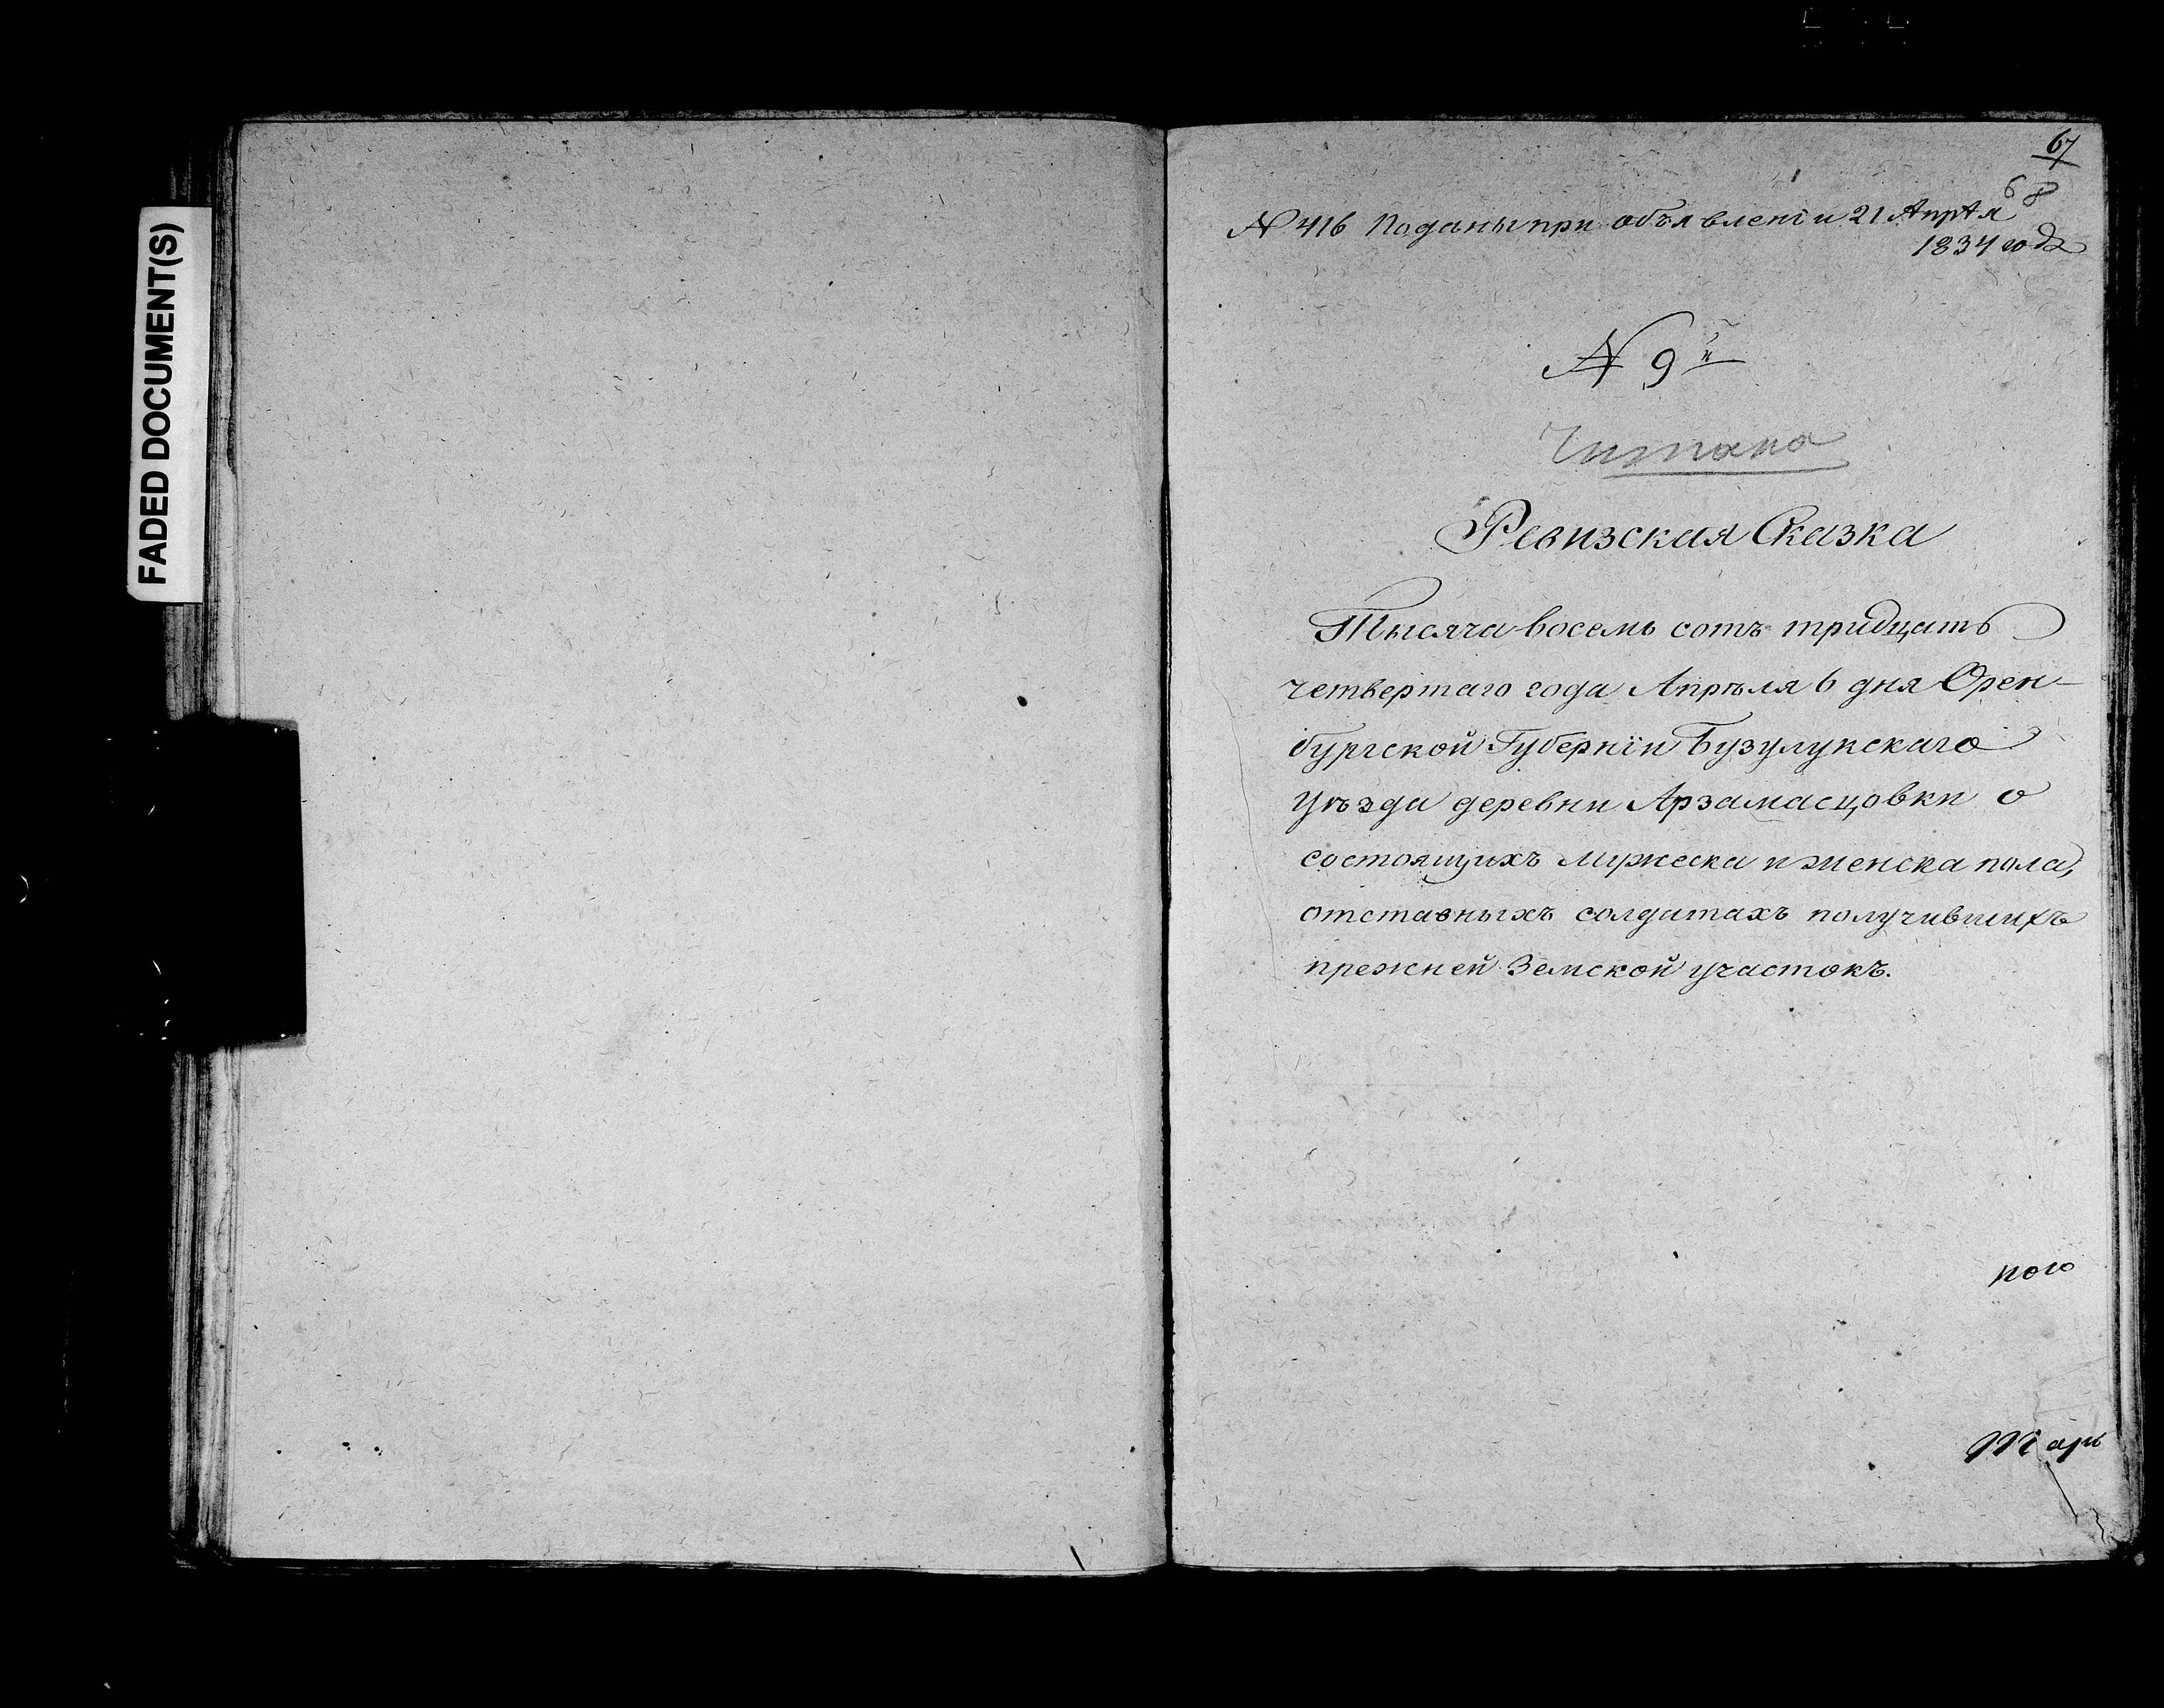 FADED DOCUMENT(S)
67
68
№ 416 Поданы при объявленіи 21 Апрѣля
1834 года
№ 9й
Читано
Ревизская Сказка
Тысяча восемь сотъ тридцать
четвертаго года Апрѣля 6 дня Орен-
бургской Губерніи Бузулукскаго
уѣзда деревни Арзамасцовки о
состоящихъ мужеска и женска пола,
отставныхъ солдатахъ получившихъ
прежней Земской участокъ.
ного